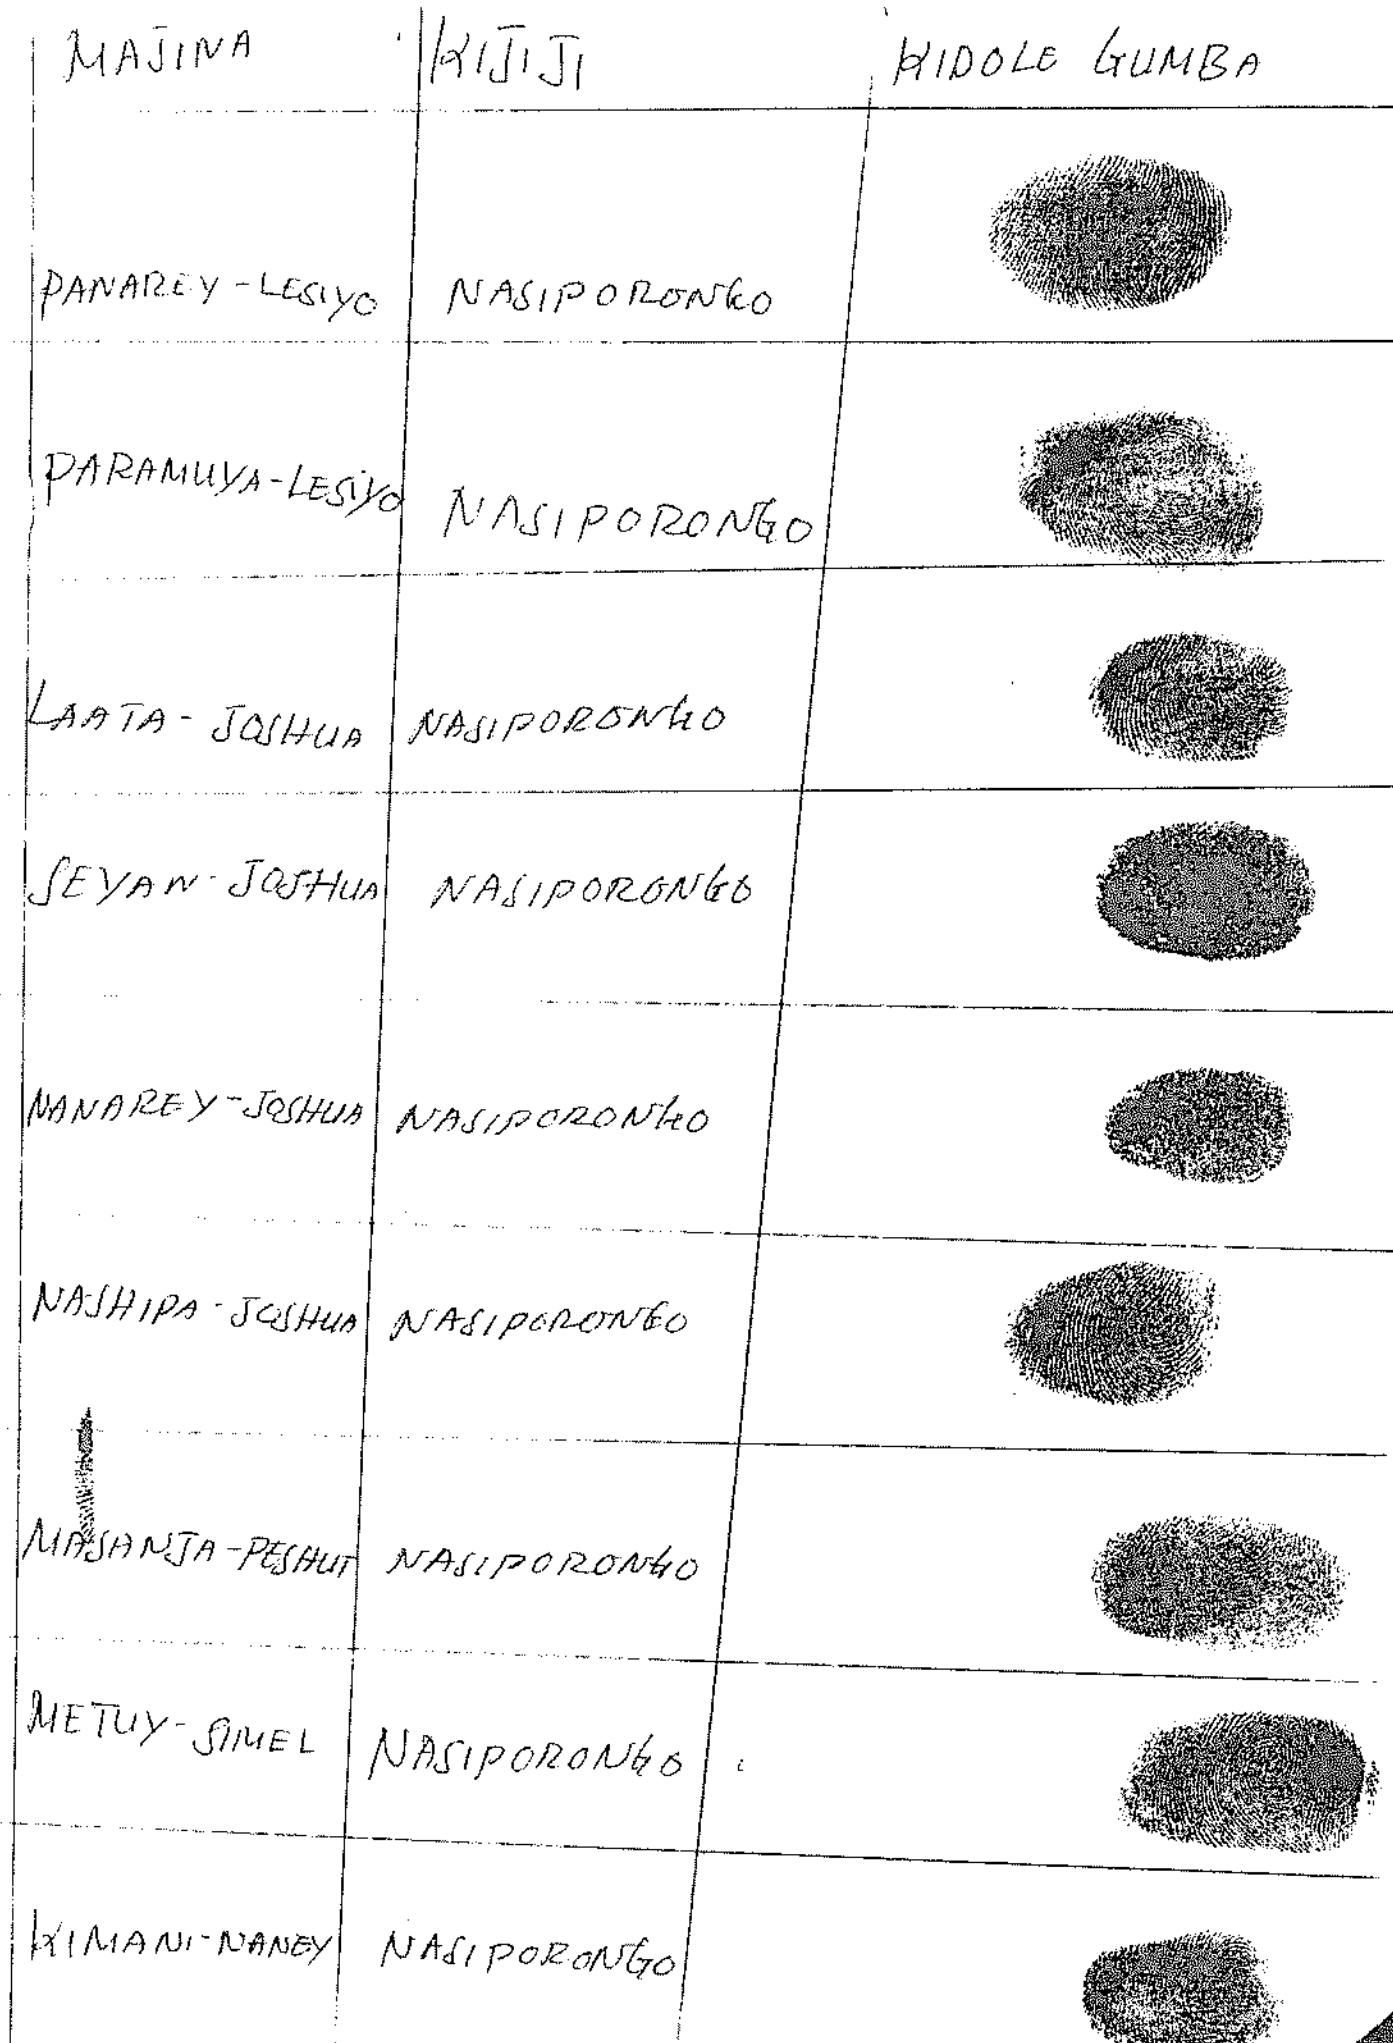 MAJINA KIJIJI KIDOLE GUMBA
PANAREY-LESIYO NASIPORONGO
PARAMUYA-LESIYO NASIPORONGO
LAATA-JOSHUA NASIPORONGO
SEYAN-JOSHUA NASIPORONGO
NANAREY-JOSHUA NASIPORONGO
NASHIPA-JOSHUA NASIPORONGO
MASANJA-PESHUT NASIPORONGO
METUY-SIMEL NASIPORONGO
KIMANI-NANEY NASIPORONGO